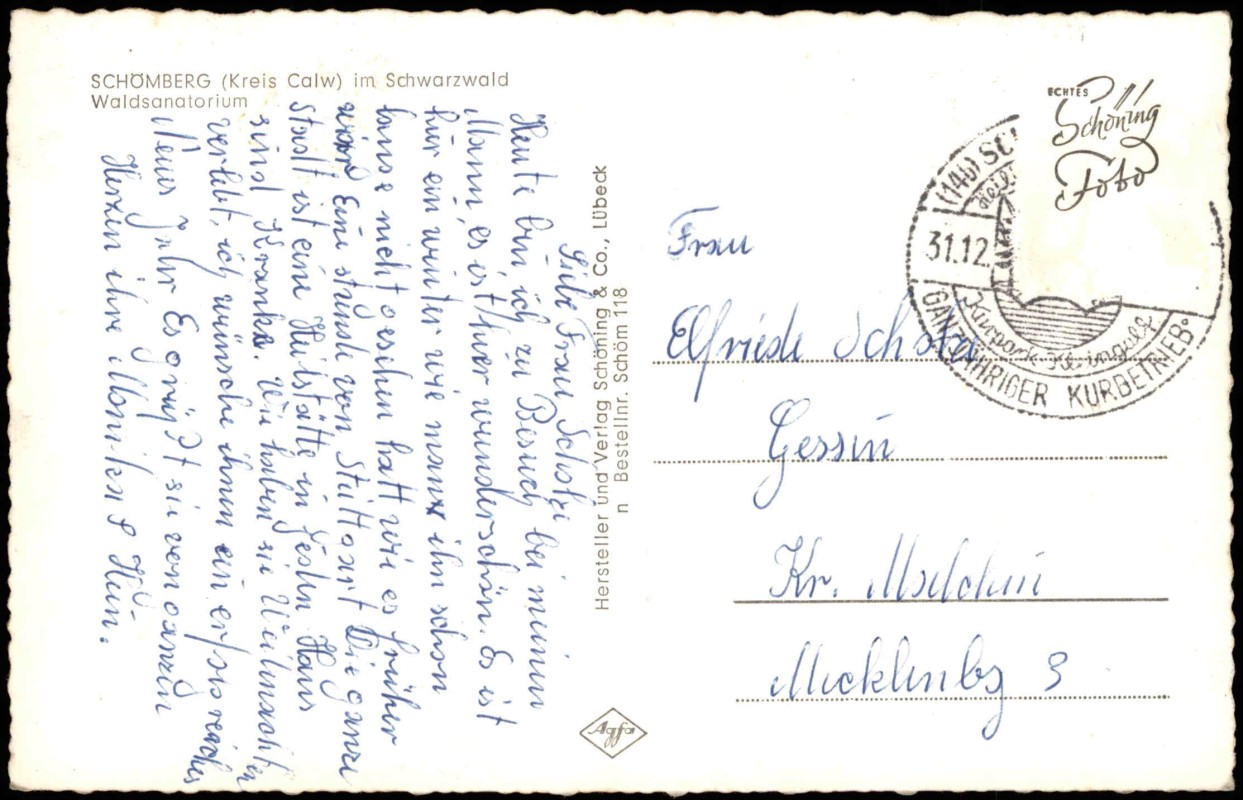 SCHÖMBERG (Kreis Calw) im Schwarzwald
Waldsanatorium
Liebe Frau Scholz
Heute bin ich zu Besuch bei meinen
Mann, es ist hier wunderschön. Es ist
hier ein winter wie man ihn schon
lange nicht gesehen hatt wie es früher
war Eine stunde von Stuttgart Die ganze
Stadt ist eine Heilstätte in jeden Haus
sind Kranke. Wie haben sie Weihnachten
verlebt, ich wünsche ihnen ein erfolgreiches
Neues Jahr Es grüßt sie von ganzen
Herzen ihre Monika & Hein.
Hersteller und Verlag Schöning & Co., Lübeck
n Bestellnr. Schöm 118
Agfa
ECHTES
Schöning
Foto
(14b) SC
31.12.
Kurpark
GANZJÄHRIGER KURBETRIEB
Frau
Elfriede Scholz
Gessin
Kr. Malchin
Mecklenbg 3